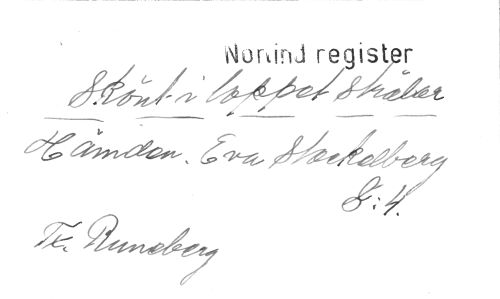 Norlind register
Skönt i loppet strålar
Hämden. Eva Stackelberg
S: 4.
Tx. Runeberg